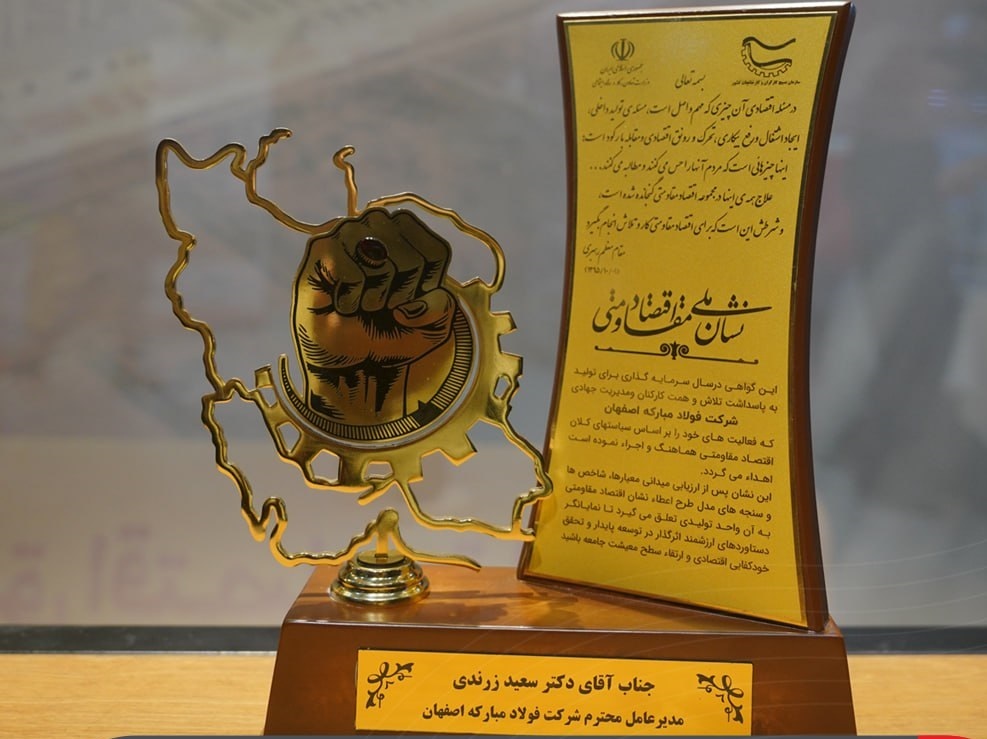 جمهوری اسلامی ایران
بسمه تعالی
در مسئله اقتصادی آن چیزی که مهم و اصل است، مسئله ی تولید داخلی،
ایجاد اشتغال و رفع بیکاری، تحرک و رونق اقتصادی و مقابله با رکود است؛
اینها چیزهائی است که مردم آنها را حس می کنند و مطالبه می کنند...
علاج همه ی اینها در مجموعه اقتصاد مقاومتی گنجانده شده است،
و شرطش این است که برای اقتصاد مقاومتی کار و تلاش انجام بگیرد
مقام معظم رهبری
نشان ملی اقتصاد مقاومتی
این گواهی درسال سرمایه گذاری برای تولید
به پاسداشت تلاش و همت کارکنان ومدیریت جهادی
شرکت فولاد مبارکه اصفهان
که فعالیت های خود را بر اساس سیاستهای کلان
اقتصاد مقاومتی هماهنگ و اجراء نموده است
اهداء می گردد.
این نشان پس از ارزیابی میدانی معیارها، شاخص ها
و سنجه های مدل طرح اعطاء نشان اقتصاد مقاومتی
به آن واحد تولیدی تعلق می گیرد تا نمایانگر
دستاوردهای ارزشمند اثرگذار در توسعه پایدار و تحقق
خودکفایی اقتصادی و ارتقاء سطح معیشت جامعه باشید
جناب آقای دکتر سعید زرندی
مدیرعامل محترم شرکت فولاد مبارکه اصفهان